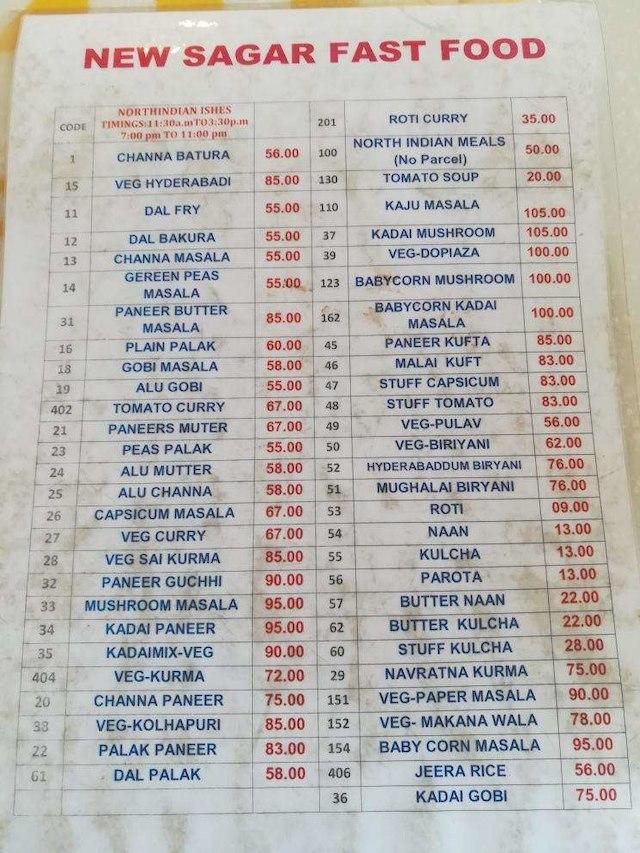 NEW SAGAR FAST FOOD
CODE
NORTHINDIAN ISHES
TIMINGS:11:30a.mTO3:30p.m
7:00 pm TO 11:00 pm
1 CHANNA BATURA 56.00
15 VEG HYDERABADI 85.00
11 DAL FRY 55.00
12 DAL BAKURA 55.00
13 CHANNA MASALA 55.00
14 GEREEN PEAS MASALA 55.00
31 PANEER BUTTER MASALA 85.00
16 PLAIN PALAK 60.00
18 GOBI MASALA 58.00
19 ALU GOBI 55.00
402 TOMATO CURRY 67.00
21 PANEERS MUTER 67.00
23 PEAS PALAK 55.00
24 ALU MUTTER 58.00
25 ALU CHANNA 58.00
26 CAPSICUM MASALA 67.00
27 VEG CURRY 67.00
28 VEG SAI KURMA 85.00
32 PANEER GUCHHI 90.00
33 MUSHROOM MASALA 95.00
34 KADAI PANEER 95.00
35 KADAIMIX-VEG 90.00
404 VEG-KURMA 72.00
20 CHANNA PANEER 75.00
38 VEG-KOLHAPURI 85.00
22 PALAK PANEER 83.00
61 DAL PALAK 58.00
201 ROTI CURRY 35.00
100 NORTH INDIAN MEALS (No Parcel) 50.00
130 TOMATO SOUP 20.00
110 KAJU MASALA 105.00
37 KADAI MUSHROOM 105.00
39 VEG-DOPIAZA 100.00
123 BABYCORN MUSHROOM 100.00
162 BABYCORN KADAI MASALA 100.00
45 PANEER KUFTA 85.00
46 MALAI KUFT 83.00
47 STUFF CAPSICUM 83.00
48 STUFF TOMATO 83.00
49 VEG-PULAV 56.00
50 VEG-BIRIYANI 62.00
52 HYDERABADDUM BIRYANI 76.00
51 MUGHALAI BIRYANI 76.00
53 ROTI 09.00
54 NAAN 13.00
55 KULCHA 13.00
56 PAROTA 13.00
57 BUTTER NAAN 22.00
62 BUTTER KULCHA 22.00
60 STUFF KULCHA 28.00
29 NAVRATNA KURMA 75.00
151 VEG-PAPER MASALA 90.00
152 VEG- MAKANA WALA 78.00
154 BABY CORN MASALA 95.00
406 JEERA RICE 56.00
36 KADAI GOBI 75.00